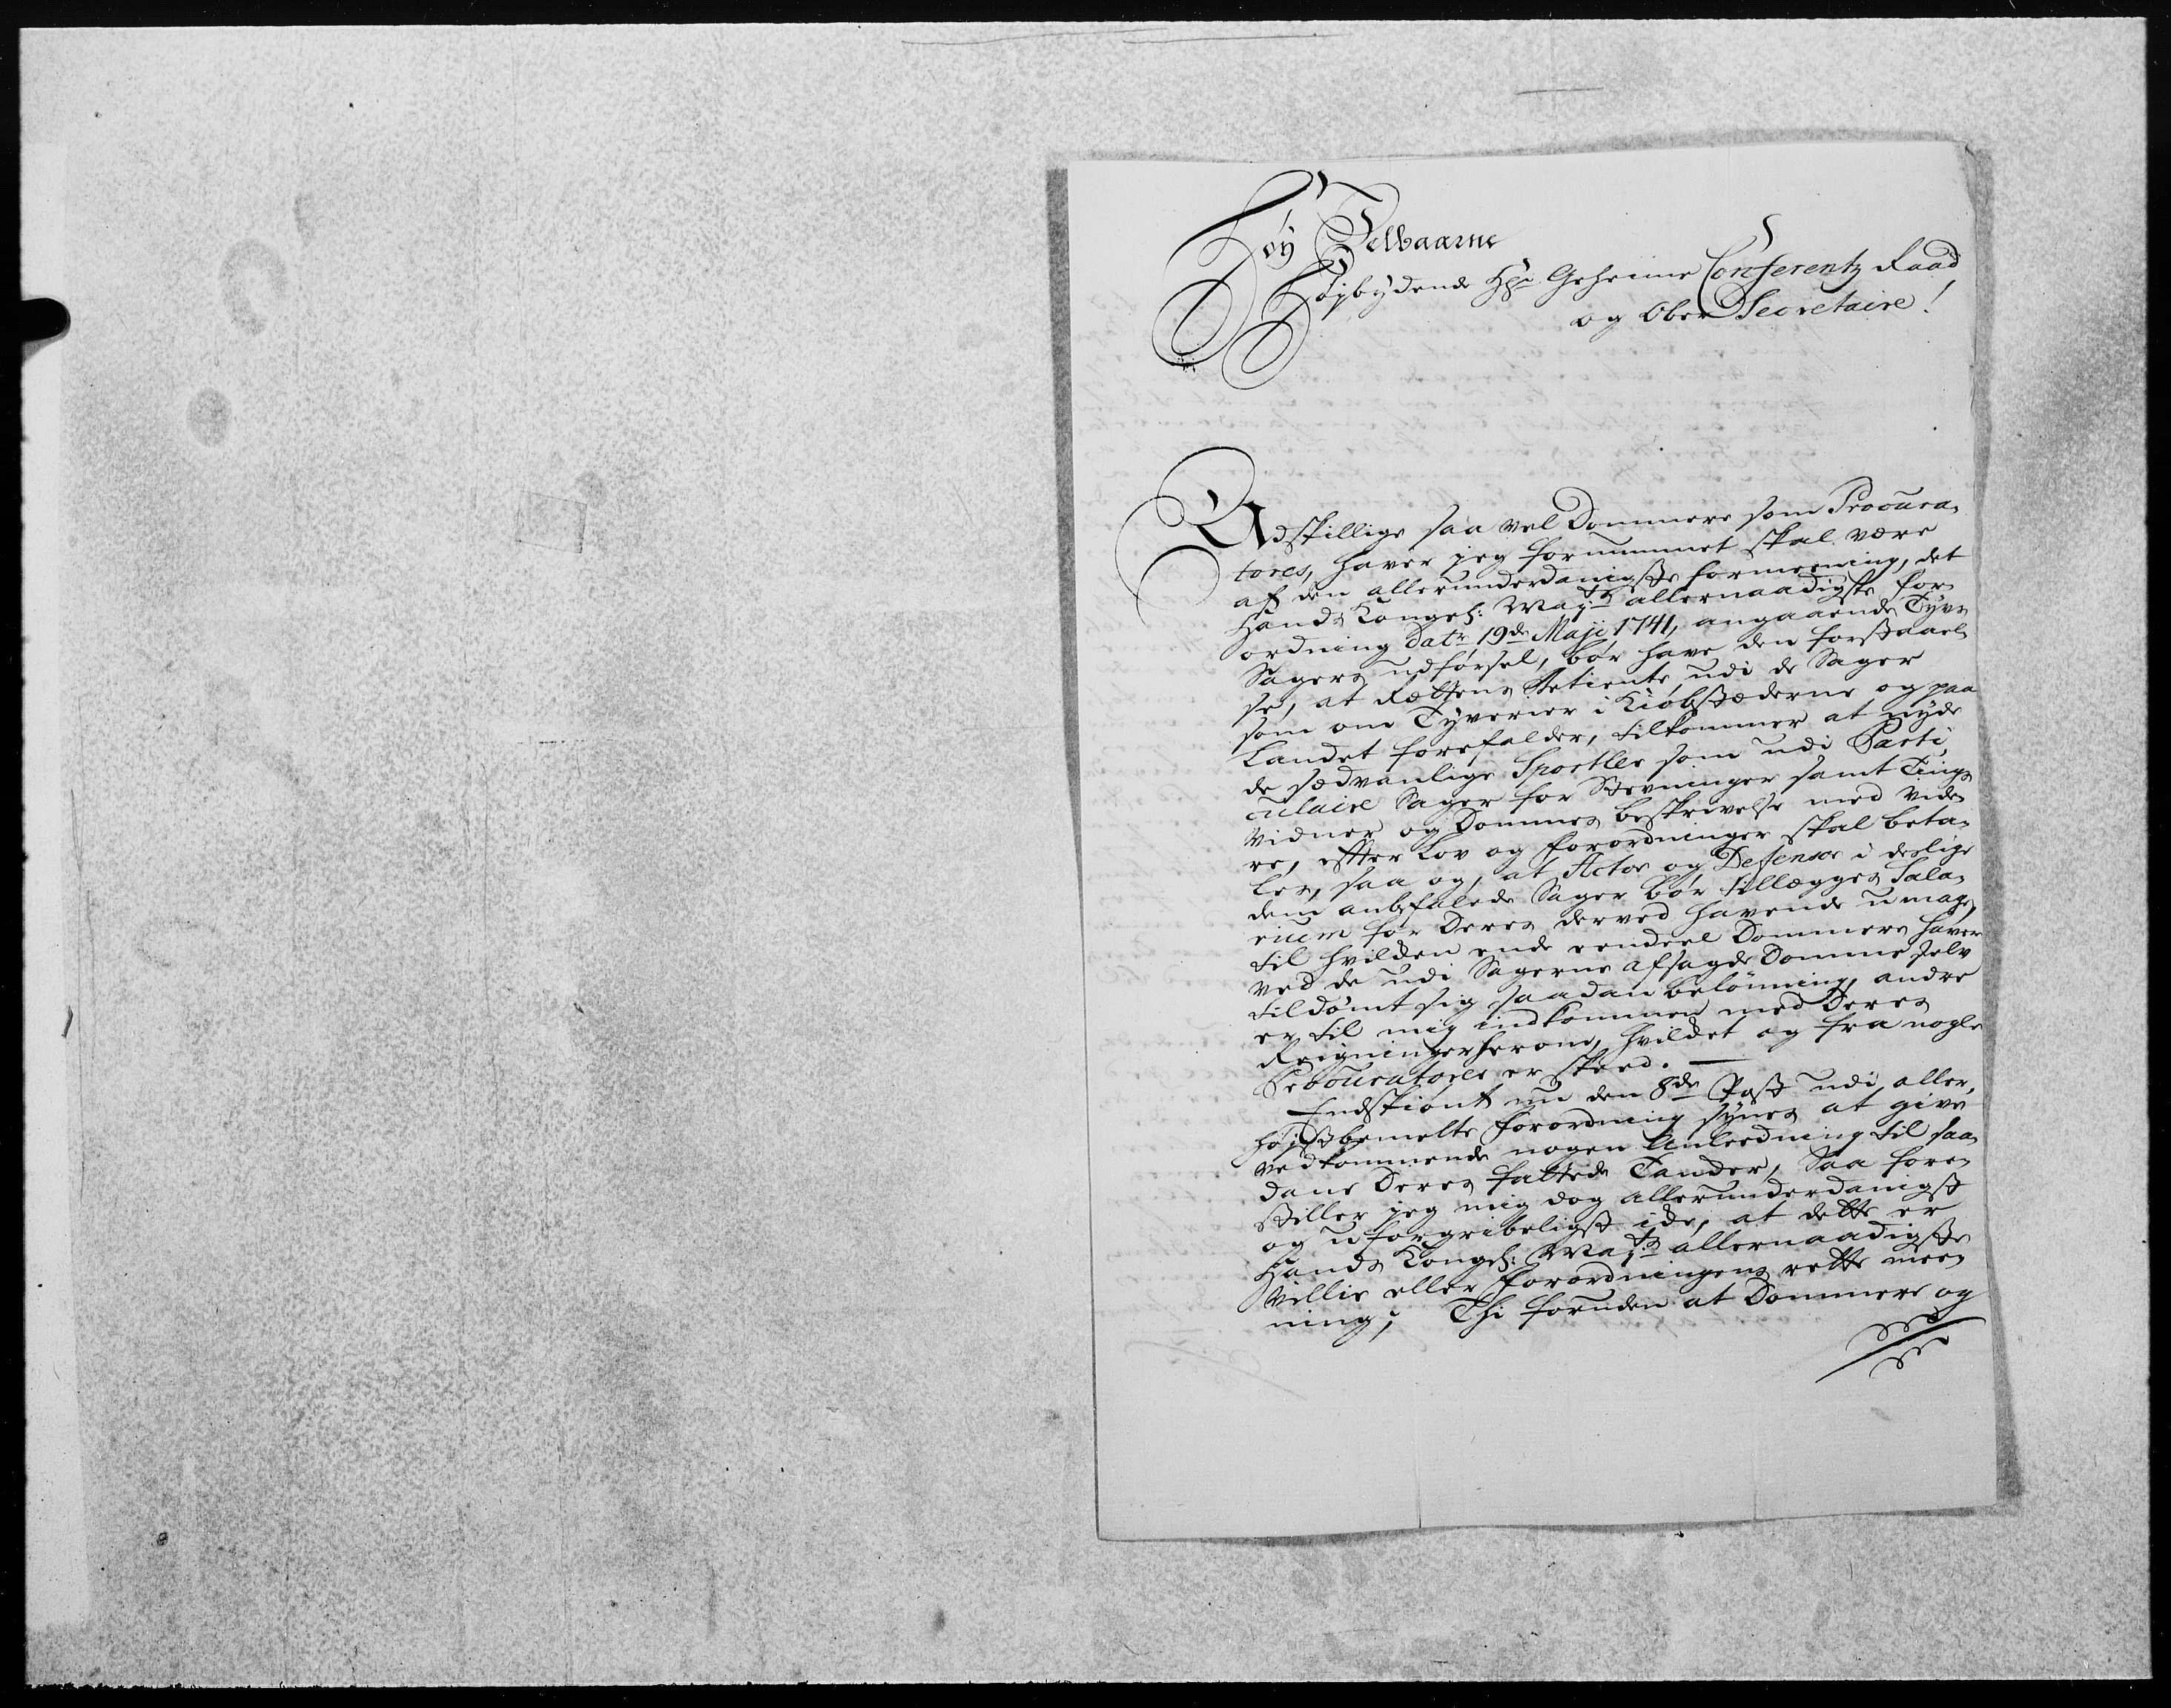 Høy Velbaarne
Høybydende Hr. Geheime Conferentz Raad
og Ober Secretaire!
Adskillige saa vel Dommere som Procura-
tores, haver jeg fornummet skal være
af den allerunderdanigste formeening, det
Hands Kongel: May:ts allernaadigste for-
ordning Dat: 19de Maji 1741, angaaende Tyve
Sagers udførsel, bør have den forstaael-
se, at Rettens Betiente udi de Sager
som om Tyverier i Kiøbstæderne og paa
Landet forefalder, tilkommer at nyde
de sædvanlige Sportler som udi Parti-
culaire Sager for Stevninger samt Tings
Vidner og Dommes beskrivelse med vide-
re, efter Lov og forordninger skal beta-
les, saa og, at Actor og Defensor i deslige
dem anbefalede Sager bør tillægges Sala-
rium for Deres derved havende umage,
til hvilken ende eendeel Dommere haver
ved de udi Sagerne afsagde Domme selv
tildømt sig saadan belønning, andre
er til mig indkommen med Deres
Reigninger herom, hvilket og fra nogle
Procuratores er skeed. —
Endskiønt nu den 8de Post udi aller-
høystbemelte forordning synes at give
vedkommende nogen Anleedning til saa-
dane Deres fattede Tanker, Saa fore-
stiller jeg mig dog allerunderdanigst
og uforgribeligst ide, at dette er
Hands Kongel: May:ts allernaadigste
Villie eller Forordningens rette mee-
ning; Thi foruden at Dommere og